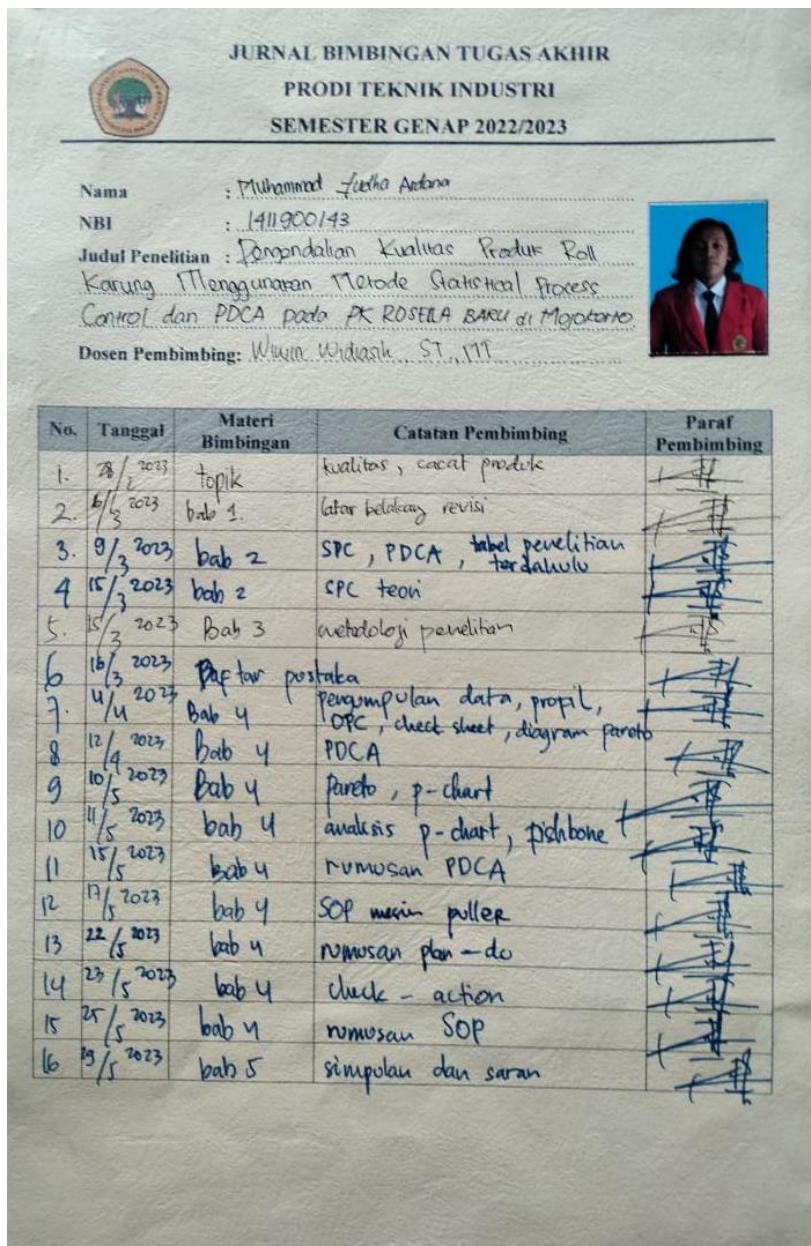 JURNAL BIMBINGAN TUGAS AKHIR
PRODI TEKNIK INDUSTRI
SEMESTER GENAP 2022/2023
Nama : Muhammad Yudha Ardana
NBI : 1411900143
Judul Penelitian : Pengendalian Kualitas Produk Roll
Karung Menggunakan Metode Statistical Process
Control dan PDCA pada PK ROSELLA BARU di Mojokerto
Dosen Pembimbing: Wiwin Widiasih, ST., MT
No. Tanggal Materi Bimbingan Catatan Pembimbing Paraf Pembimbing
1. 28/2 2023 topik kualitas, cacat produk
2. 6/3 2023 bab 1. latar belakang revisi
3. 9/3 2023 bab 2 SPC, PDCA, tabel penelitian terdahulu
4 15/3 2023 bab 2 SPC teori
5. 15/3 2023 Bab 3 metodologi penelitian
6 16/3 2023 Daftar pustaka
7. 4/4 2023 Bab 4 pengumpulan data, propil, OPC, check sheet, diagram pareto
8 12/4 2023 Bab 4 PDCA
9 10/5 2023 Bab 4 Pareto, p-chart
10 11/5 2023 bab 4 analisis p-chart, pishbone
11 15/5 2023 bab 4 rumusan PDCA
12 17/5 2023 bab 4 SOP mesin puller
13 22/5 2023 bab 4 rumusan plan - do
14 23/5 2023 bab 4 check - action
15 25/5 2023 bab 4 rumusan SOP
16 29/5 2023 bab 5 simpulan dan saran